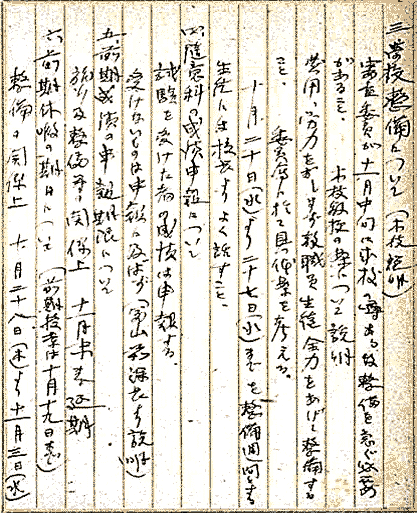 三 学校整備について（本校説明）
審査委員が十一月中旬に来校せらるる故整備を急ぐ必要
があること、 本校昇格の件について説明
費用、労力を 教職員生徒全力をあげて整備する
こと、 委員会に於て具体案を考える。
十月二十日（水）より二十七日（水）までを整備週間とする
生徒には校長よりよく話すこと、
四 随意科の成績申報について
試験を受けた者の成績は申報する。
受けないものは申報に及ばず（ 説明）
五、前期成績の申報期限について
旅行及整備等の関係上 十一月末まで延期
六、前期休暇の期日について（前期授業は十月十九日まで）
整備の関係上 十月二十八日（木）より十一月三日（水）